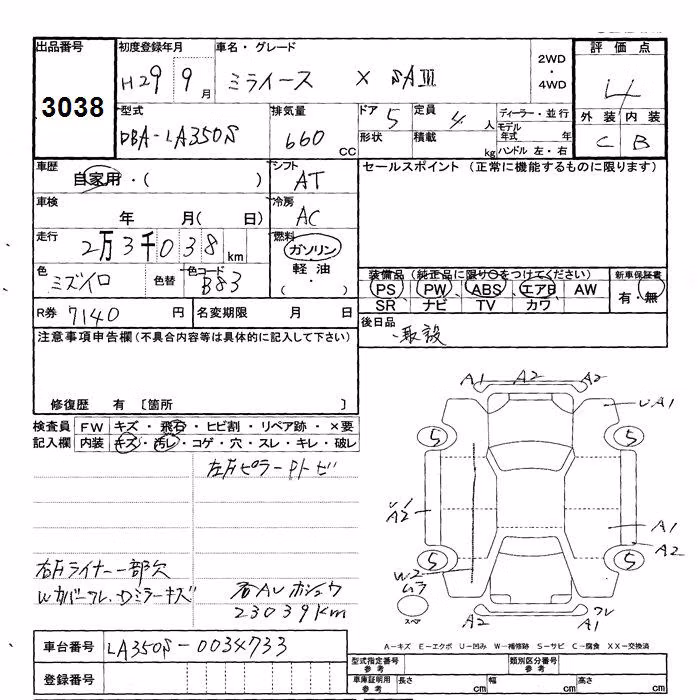 出品番号 初度登録年月 車名・グレード 評価点
3038
H29 9月 ミライース X SAⅢ 2WD・4WD 4
型式 排気量 ドア 5 定員 4人 ディーラー・並行 外装 内装
DBA-LA350S 660cc 形状 積載 kg モデル年式 年 ハンドル 左・右 C B
車歴 シフト セールスポイント (正常に機能するものに限ります)
自家用・( ) AT
車検 冷房
年 月( 日) AC
走行 燃料
2万3千038km ガソリン
色 色替 色コード 軽油
ミズイロ B83 (・)
装備品 (純正品に限り○をつけてください) 新車保証書
PS PW ABS エアB AW 有・無
SR ナビ TV カワ
R券 7140円 名変期限 月 日 後日品
取説
注意事項申告欄(不具合内容等は具体的に記入して下さい)
修復歴 有 [箇所 ]
検査員 FW キズ・飛石・ヒビ割・リペア跡・×要
記入欄 内装 キズ・汚レ・コゲ・穴・スレ・キレ・破レ
A1 A2 A1
UA1
5 5
A2 A1
A2
5 5
W2
ムラ
スペア
A2 A1
右Fライナー一部欠
23039km
車台番号 LA350S-0034733
登録番号
A-キズ E-エクボ U-凹み W-補修跡 S-サビ C-腐食 XX-交換済
型式指定番号 参考 類別区分番号 参考
車庫証明用 参考 長さ cm 幅 cm 高さ cm